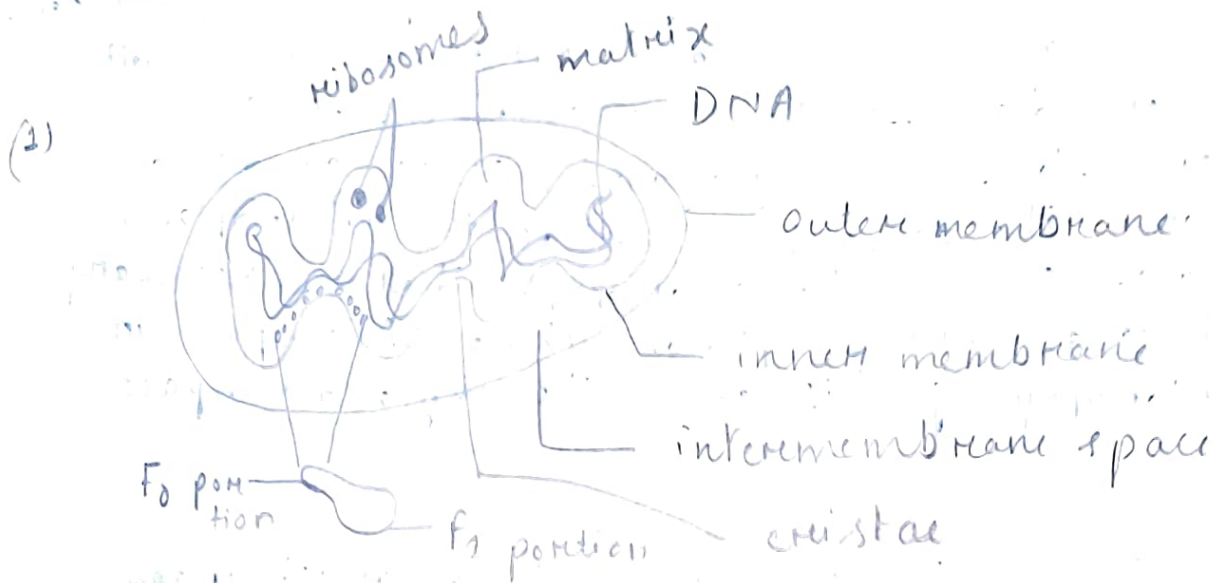 ribosomes
matrix
DNA
(1)
outer membrane
inner membrane
intermembrane space
F₀ por
tion
F₁ portion
cristae